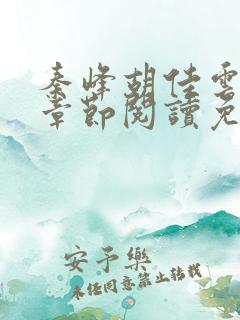 秦峰胡佳雲
章節閱讀免
安予樂
未经同意禁止转载